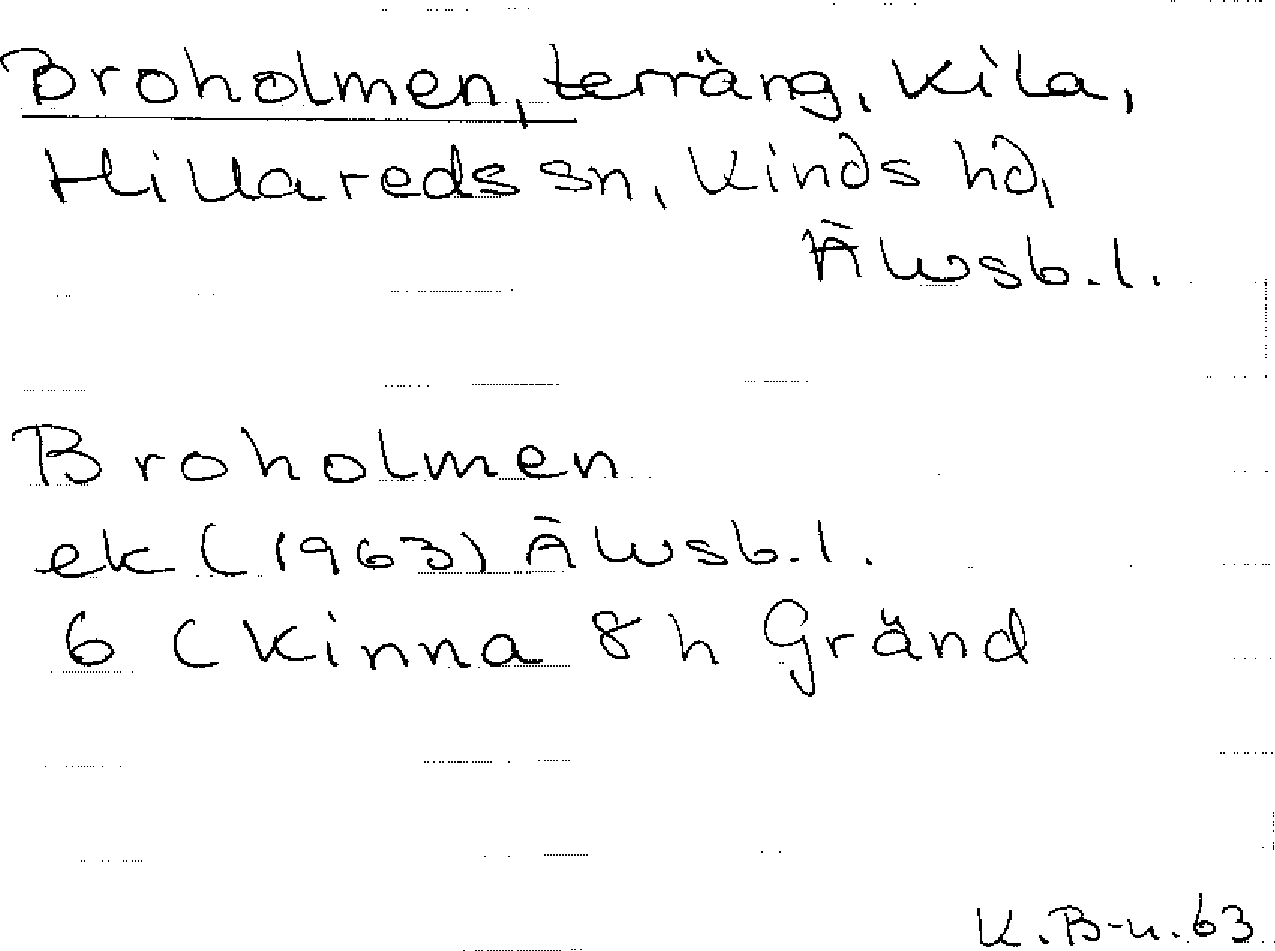 Broholmen, terräng, Kila,
Hillareds sn, Kinds hd,
Älvsb. l.
Broholmen
ek (1963) Älvsb. l.
6 ( Kinna 8 h Gränd
K. B-n. 63